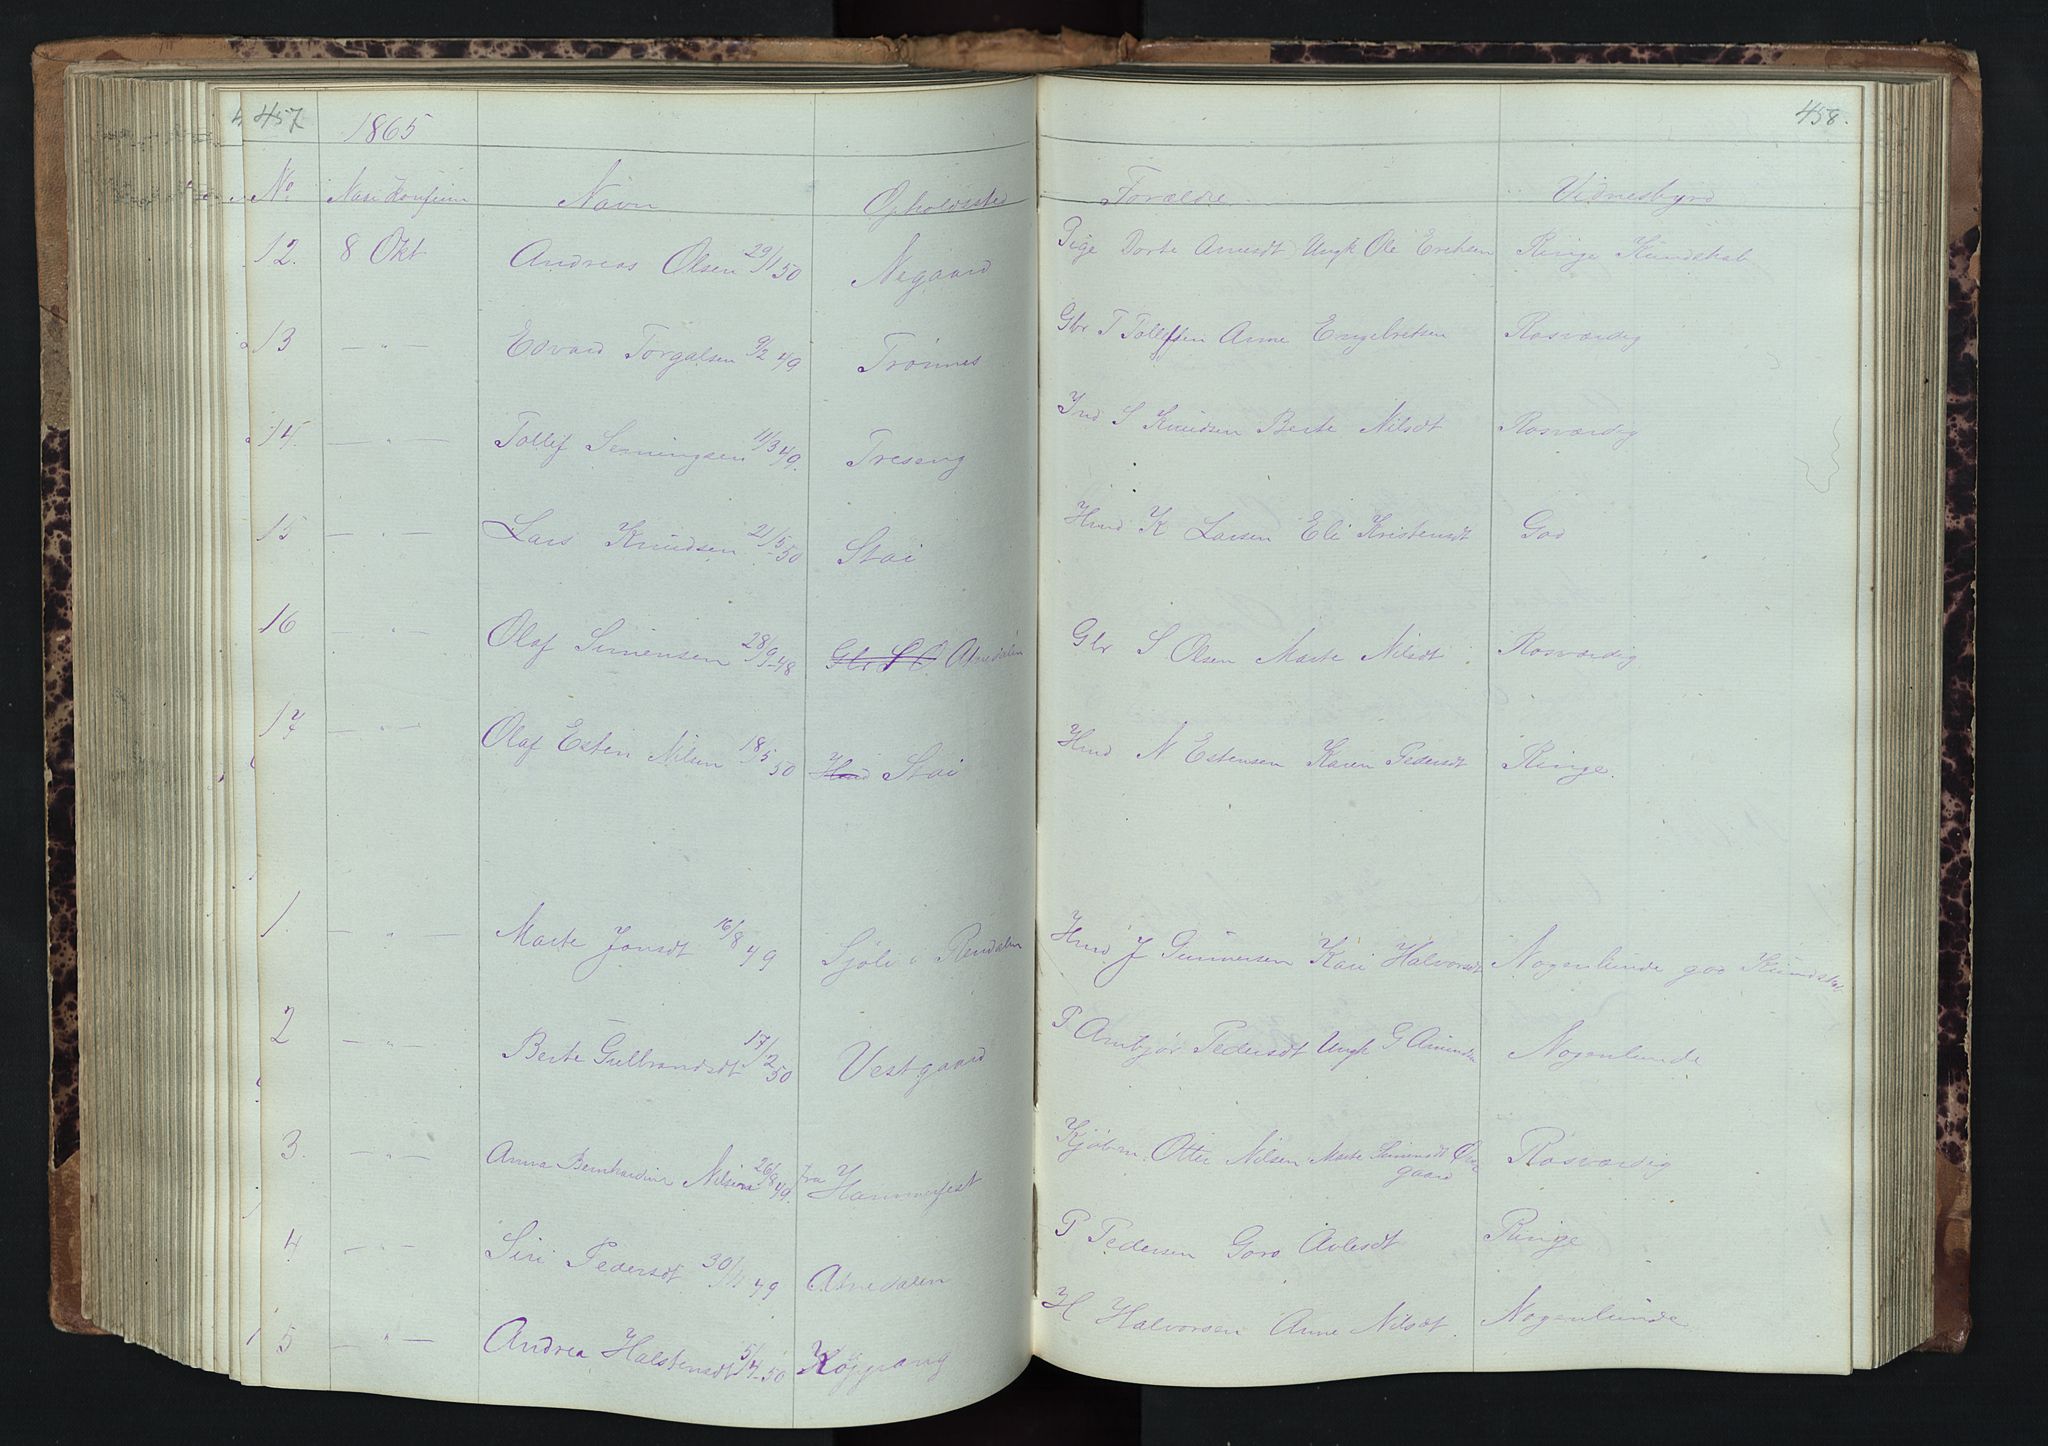 457
1865
458.
No Navn Opholdssted Forældre Vidnesbyrd
12. 8 Okt Andreas Olsen 29/1 50 Negaard Pige Dorte Amusdt Ungk Ole Eriksen Ringe Kundskab
13 — " — Edvard Torgalsen 9/2 49 Trønnes Gbr T Tollefsen Anne Engebretsen Rosværdig
14. — " — Tollef Semingsen 11/3 49. Treseng Ind S Knudsen Berte Nilsdt Rosværdig
15 — " — Lars Knudsen 21/5 50 Stai Hmd K Larsen Eli Kristensdt God
16 — " — Olaf Simensen 28/9 48 Atnedalen Gbr S Olsen Marte Nilsdt Rosværdig
17 — " — Olaf Esten Nilsen 18/5 50 Hmd Stai Hmd N Estensen Karen Pedersdt Ringe.
1. — " — Marte Jonsdt 16/8 49 Sjøli i Rendalen Hmd J Gunnersen Kari Halvorsdt Nogenlunde god Kundskab
2 — " — Berte Gulbrandsdt 17/2 50 Vestgaard P Ambjør Pedersdt Ungk G Amundsen Nogenlunde
3. — " — Anna Bernhardine Nilsen 26/8 49. fra Hammerfest Kjøbm. Otte Nilsen Marte Simensdt
gaard Rosværdig
4 — " — Siri Pedersdt 49 Atnedalen P Pedersen Goro Avlesdt Ringe
5 — " — Andrea Halstensdt 5/4 50 Køjgrang H Halvorsen Anne Nilsdt. Nogenlunde